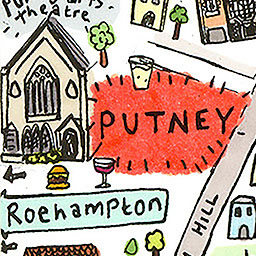 theatre
PUTNEY
Roehampton
HILL